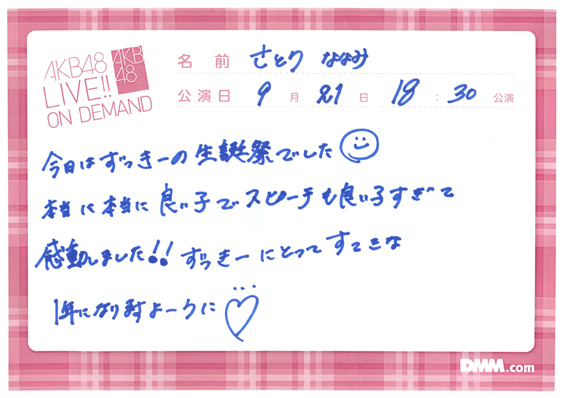 AKB48
LIVE!!
ON DEMAND
AKB
48
名前 さとう ななみ
公演日 9月21日 18:30 公演
今日はずっきーの生誕祭でした
本当に本当に良い子でスピーチも良い子すぎて
感動しました!! ずっきーにとってすてきな
1年になりますよーうに
DMM.com